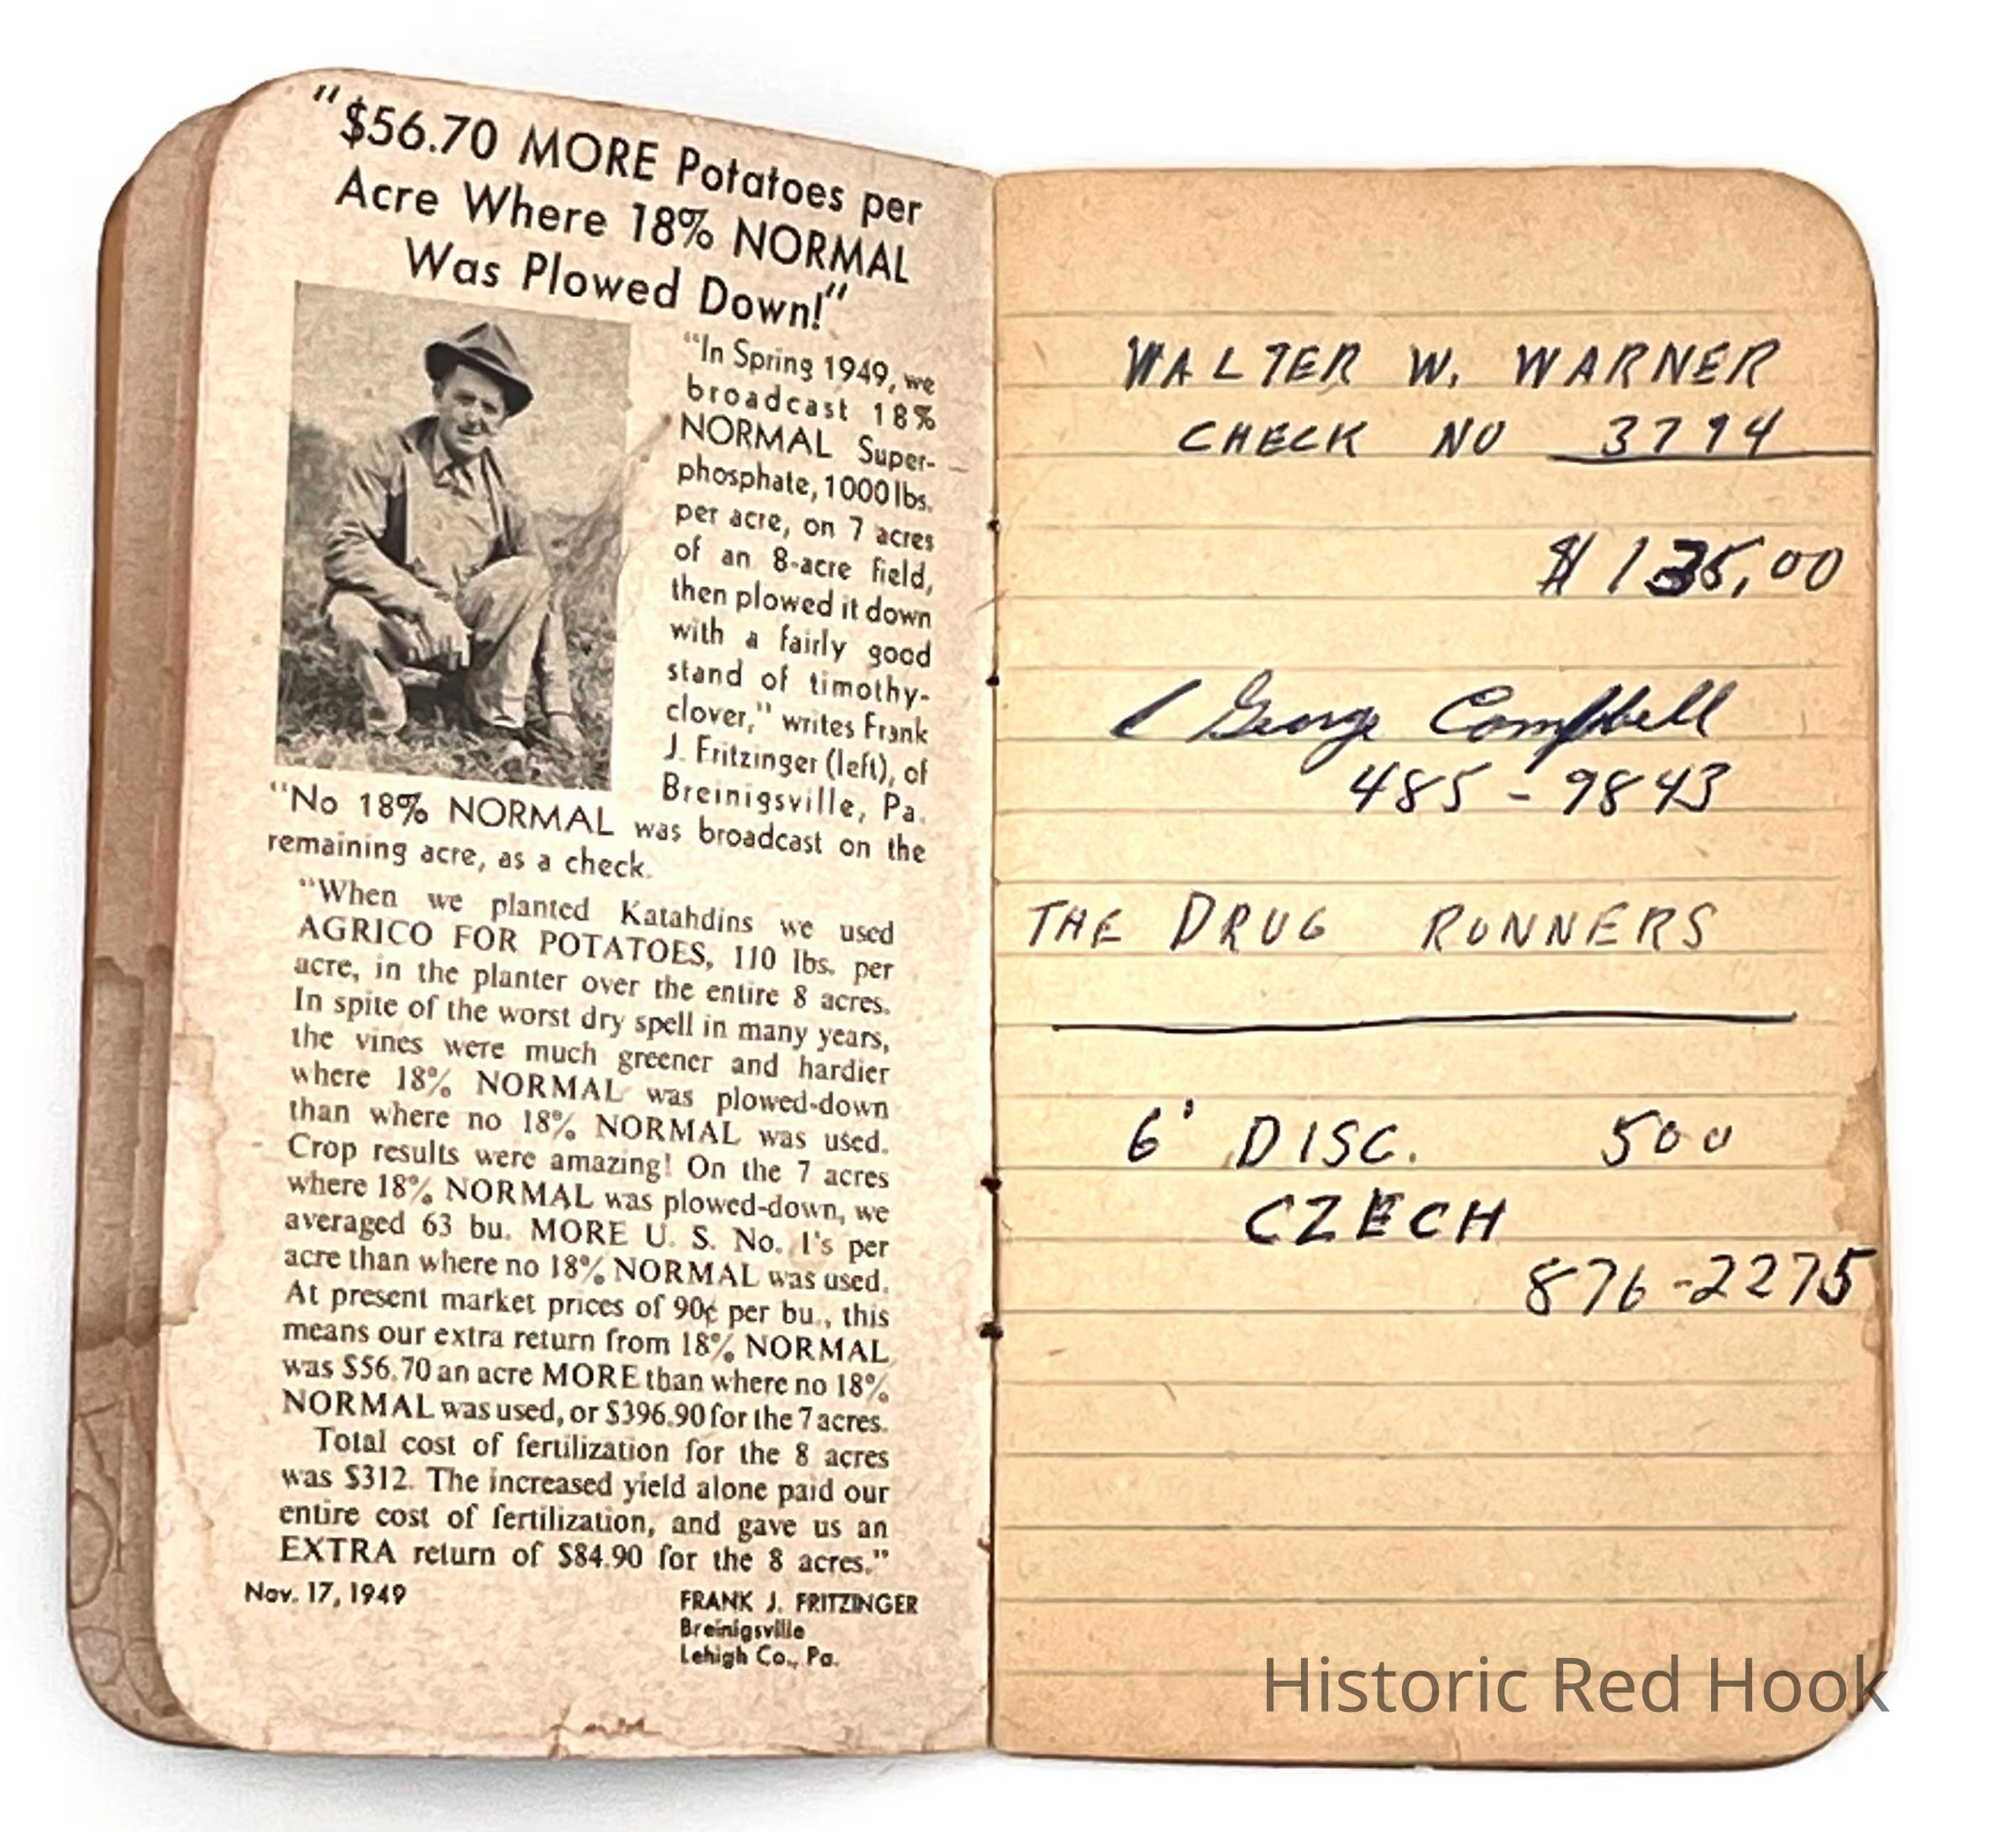 "$56.70 MORE Potatoes per
Acre Where 18% NORMAL
Was Plowed Down!"
"In Spring 1949, we
broadcast 18%
NORMAL Super-
phosphate, 1000 lbs.
per acre, on 7 acres
of an 8-acre field,
then plowed it down
with a fairly good
stand of timothy-
clover," writes Frank
J. Fritzinger (left), of
Breinigsville, Pa.
"No 18% NORMAL was broadcast on the
remaining acre, as a check.
"When we planted Katahdins we used
AGRICO FOR POTATOES, 110 lbs. per
acre, in the planter over the entire 8 acres.
In spite of the worst dry spell in many years,
the vines were much greener and hardier
where 18% NORMAL was plowed-down
than where no 18% NORMAL was used.
Crop results were amazing! On the 7 acres
where 18% NORMAL was plowed-down, we
averaged 63 bu. MORE U. S. No. 1's per
acre than where no 18% NORMAL was used.
At present market prices of 90¢ per bu., this
means our extra return from 18% NORMAL
was $56.70 an acre MORE than where no 18%
NORMAL was used, or $396.90 for the 7 acres.
Total cost of fertilization for the 8 acres
was $312. The increased yield alone paid our
entire cost of fertilization, and gave us an
EXTRA return of $84.90 for the 8 acres."
Nov. 17, 1949
FRANK J. FRITZINGER
Breinigsville
Lehigh Co., Pa.
WALTER W. WARNER
CHECK NO 3794
$135,00
George Campbell
485-9843
THE DRUG RUNNERS
6' DISC. 500
CZECH
876-2275
Historic Red Hook